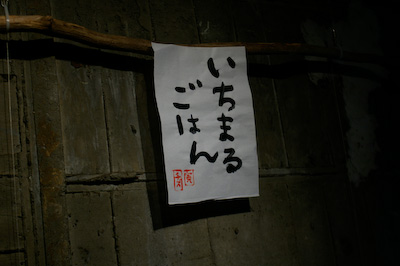 いちまる
ごはん